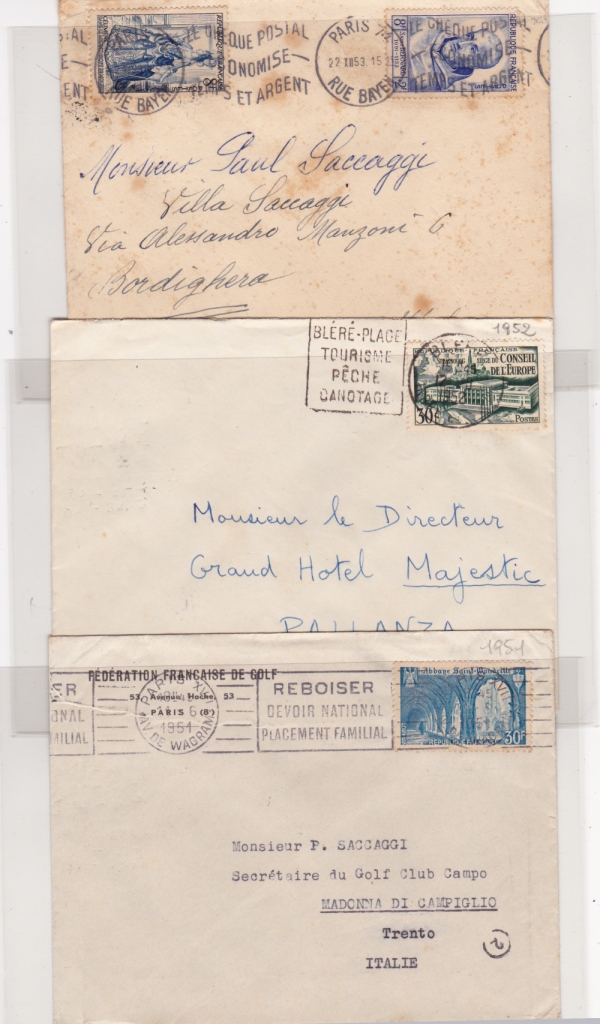 LE CHEQUE POSTAL
ECONOMISE
TEMPS ET ARGENT
PARIS
22 XII 53. 15
RUE BAYEN
LE CHEQUE POSTAL
ECONOMISE
TEMPS ET ARGENT
REPUBLIQUE FRANÇAISE
Monsieur Paul Saccaggi
Villa Saccaggi
Via Alessandro Manzoni 6
Bordighera
1952
BLÉRÉ-PLAGE
TOURISME
PÊCHE
CANOTAGE
REPUBLIQUE FRANÇAISE
CONSEIL
DE L'EUROPE
30F
Postes
Monsieur le Directeur
Grand Hotel Majestic
PALLANZA
1951
FÉDÉRATION FRANÇAISE DE GOLF
53, Avenue Hoche, 53
PARIS (8e)
PARIS XVII
6
1951
AV. DE WAGRAM
REBOISER
DEVOIR NATIONAL
PLACEMENT FAMILIAL
Abbaye Saint-Wandrille
30F
Monsieur P. SACCAGGI
Secrétaire du Golf Club Campo
MADONNA DI CAMPIGLIO
Trento
2
ITALIE